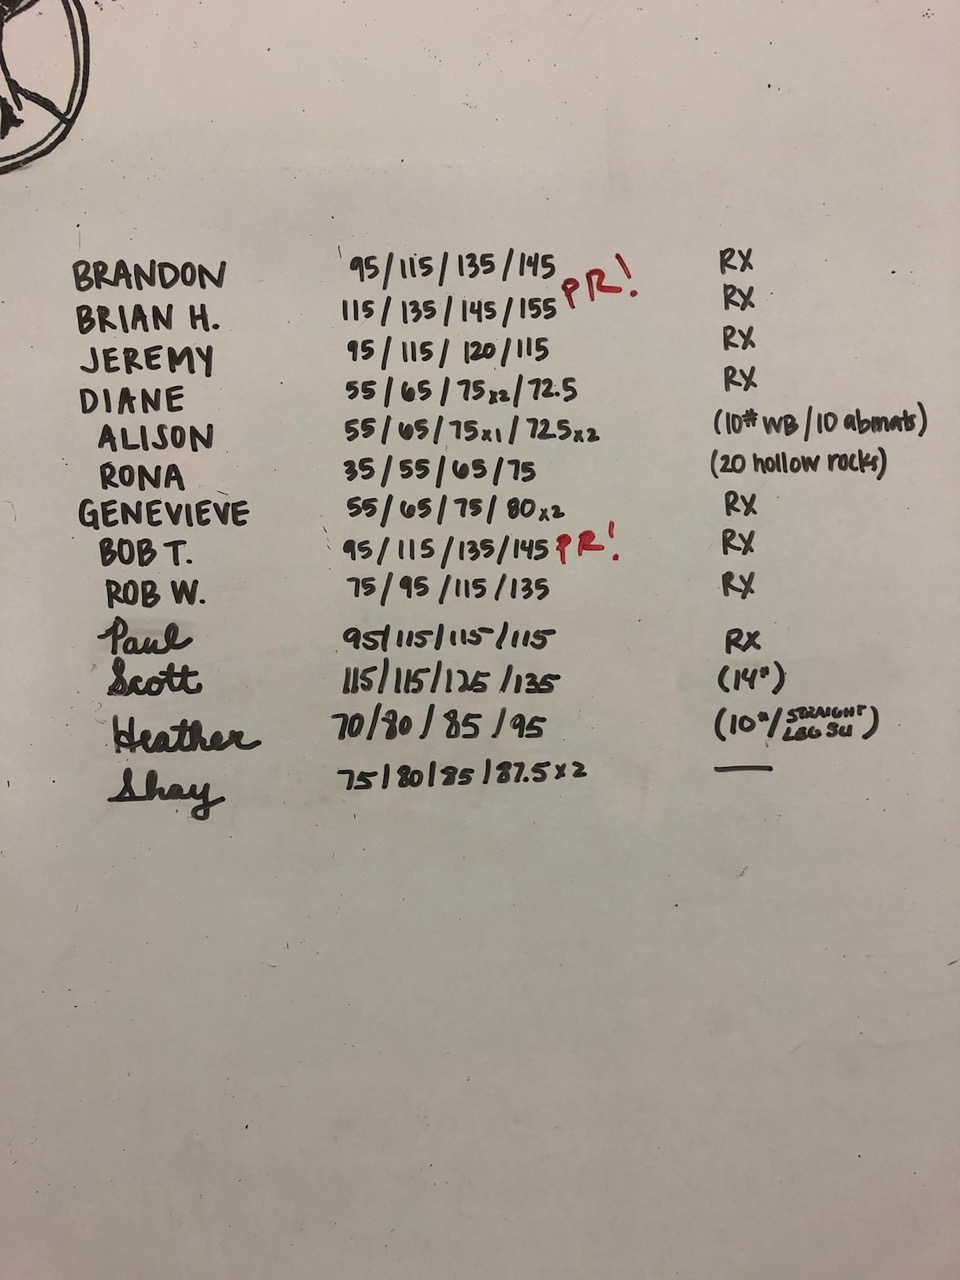 BRANDON 95/115/135/145 RX
BRIAN H. 115/135/145/155 PR! RX
JEREMY 95/115/120/115 RX
DIANE 55/65/75x2/72.5 RX
ALISON 55/65/75x1/72.5x2 (10# WB/10 abmats)
RONA 35/55/65/75 (20 hollow rocks)
GENEVIEVE 55/65/75/80x2 RX
BOB T. 95/115/135/145 PR! RX
ROB W. 75/95/115/135 RX
Paul 95/115/115/115 RX
Scott 115/115/125/135 (14#)
Heather 70/80/85/95 (10#/STRAIGHT LEG SU)
Shay 75/80/85/87.5x2 —